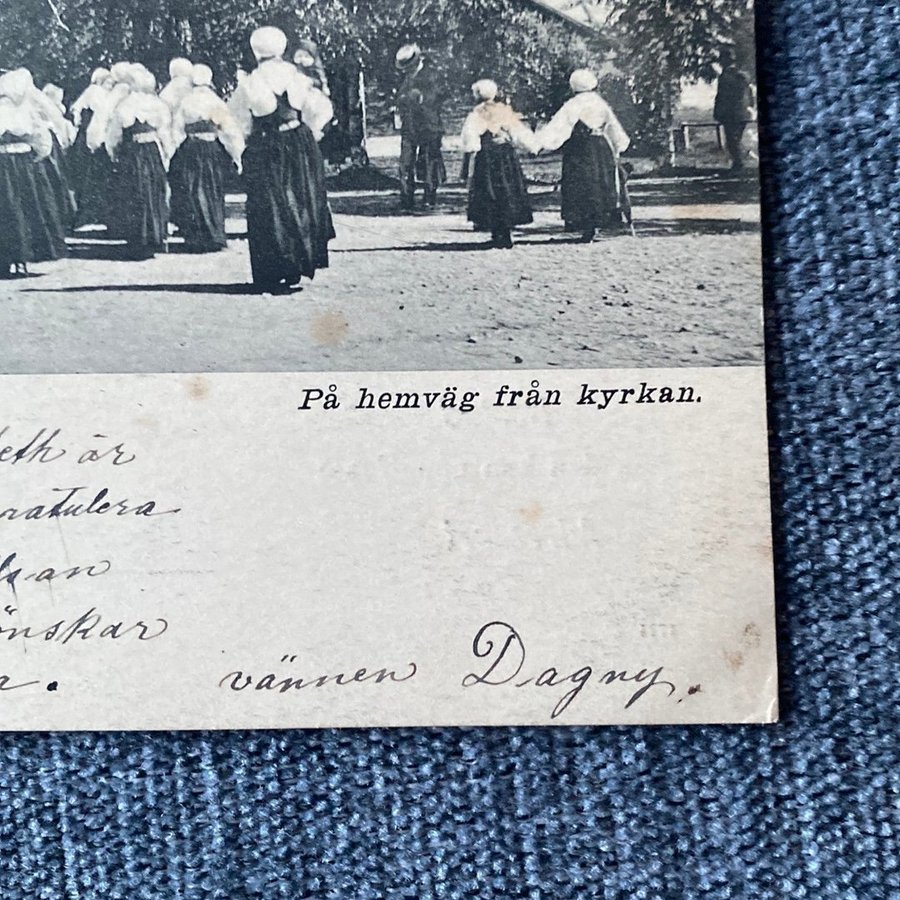 På hemväg från kyrkan.
eth är
ratulera
an
önskar
vännen Dagny.